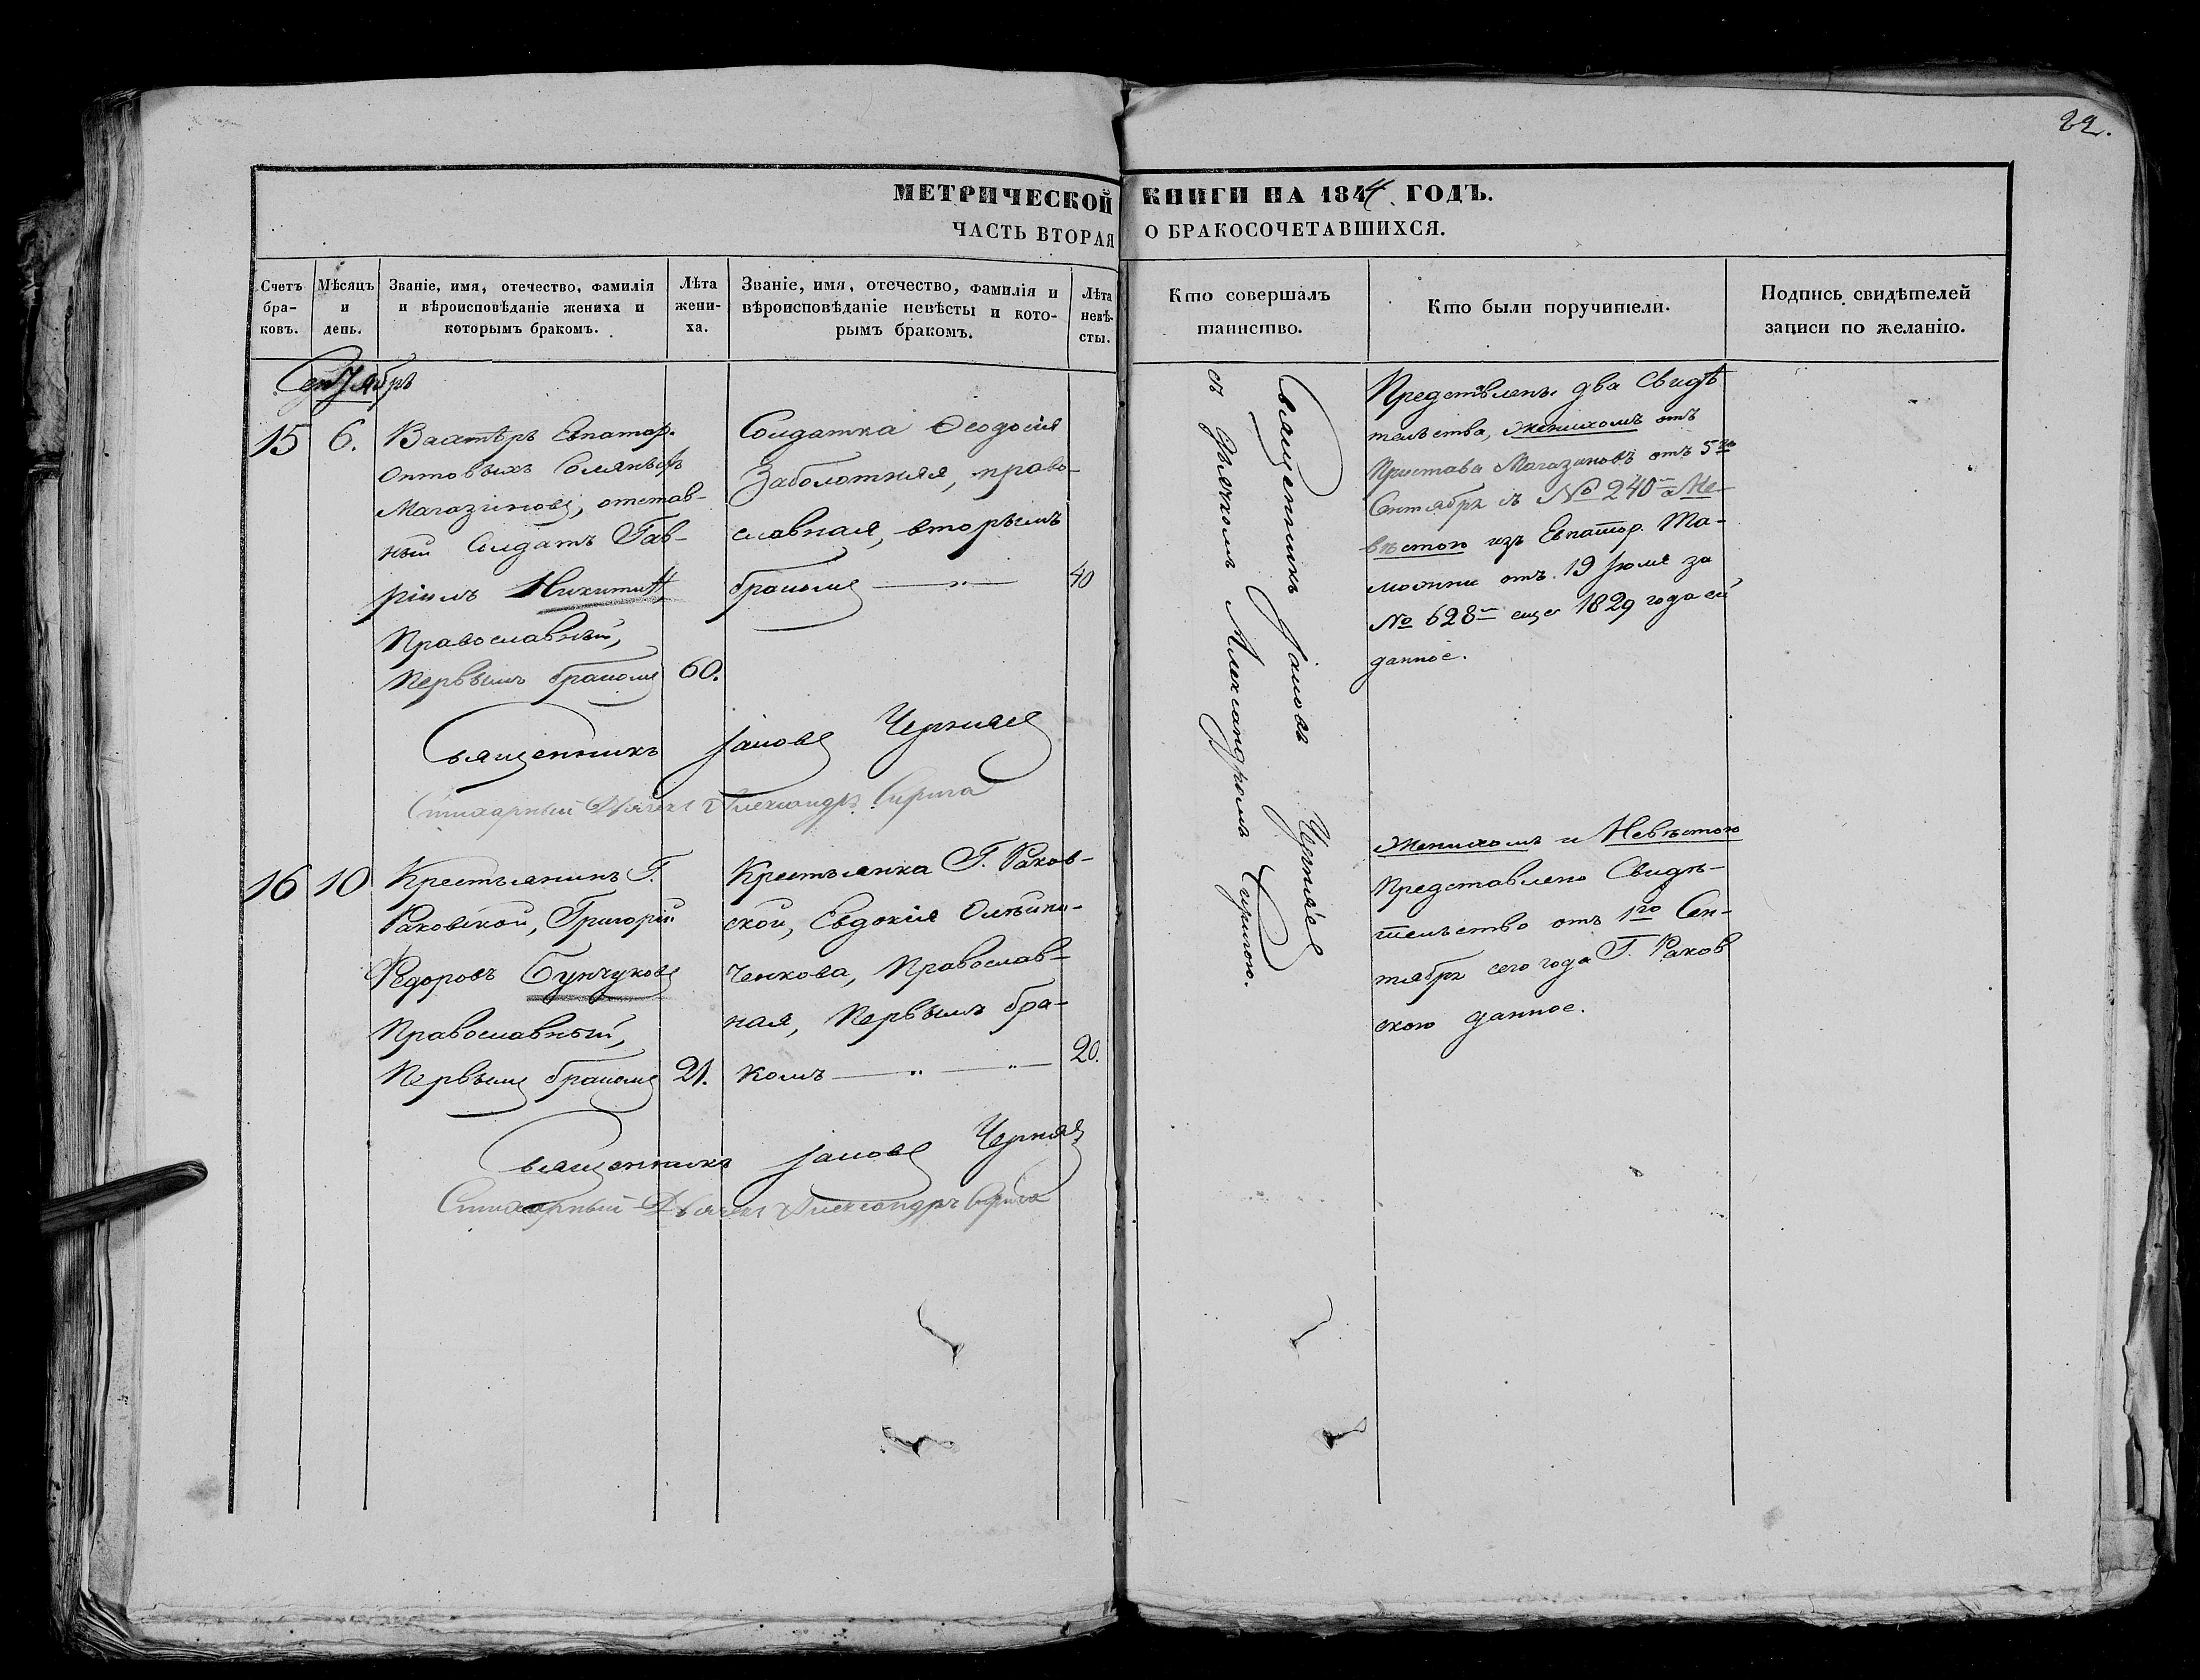 22.
МЕТРИЧЕСКОЙ КНИГИ НА 1844 ГОДЪ.
ЧАСТЬ ВТОРАЯ О БРАКОСОЧЕТАВШИХСЯ.
Счетъ
бра-
ковъ.
Мѣсяцъ
и
день.
Званіе, имя, отечество, фамилія
и вѣроисповѣданіе жениха и
которымъ бракомъ.
Лѣта
жени-
ха.
Званіе, имя, отечество, фамилія и
вѣроисповѣданіе невѣсты и кото-
рымъ бракомъ.
Лѣта
невѣ-
сты.
Кто совершалъ
таинство.
Кто были поручители.
Подпись свидѣтелей
записи по желанію.
Сентябрь
15
6.
Вахтѣръ Евпатор.
Оптовыхъ Соляныхъ
Магазиновъ, отстав-
ный Солдатъ Гав-
ріилъ Никитинъ,
Православный,
Первымъ бракомъ
60.
Солдатка Ѳеодосія
Заболотняя, право-
славная, вторымъ
бракомъ — „ —
40
Священникъ Іаковъ Черняе
съ Дьячкомъ Александромъ Сиригою.
Представлены два Свидѣ
тельства, Женихомъ отъ
Пристава Магазиновъ отъ 5го
Сентября за № 240 а Не-
вѣстою изъ Евпатор. Та-
можни отъ 19 Іюля за
№ 628 еще 1829 года ей
данное.
Священникъ Іаковъ Черняе
Стихарный Дьячекъ Александръ Сирига
16
10
Крестьянинъ Г.
Раковской, Григорій
Ѳедоровъ Бунчуковъ
Православный,
Первымъ бракомъ
21.
Крестьянка Г. Раков-
ской, Евдокія Олѣйни-
ченкова, Православ-
ная, Первымъ бра-
комъ — „ — „ —
20.
Женихомъ и Невѣстою
Представлено Свидѣ-
тельство отъ 1го Сен-
тября сего года Г. Раков
скою данное.
Священникъ Іаковъ Черняе
Стихарный Дьячекъ Александръ Сирига